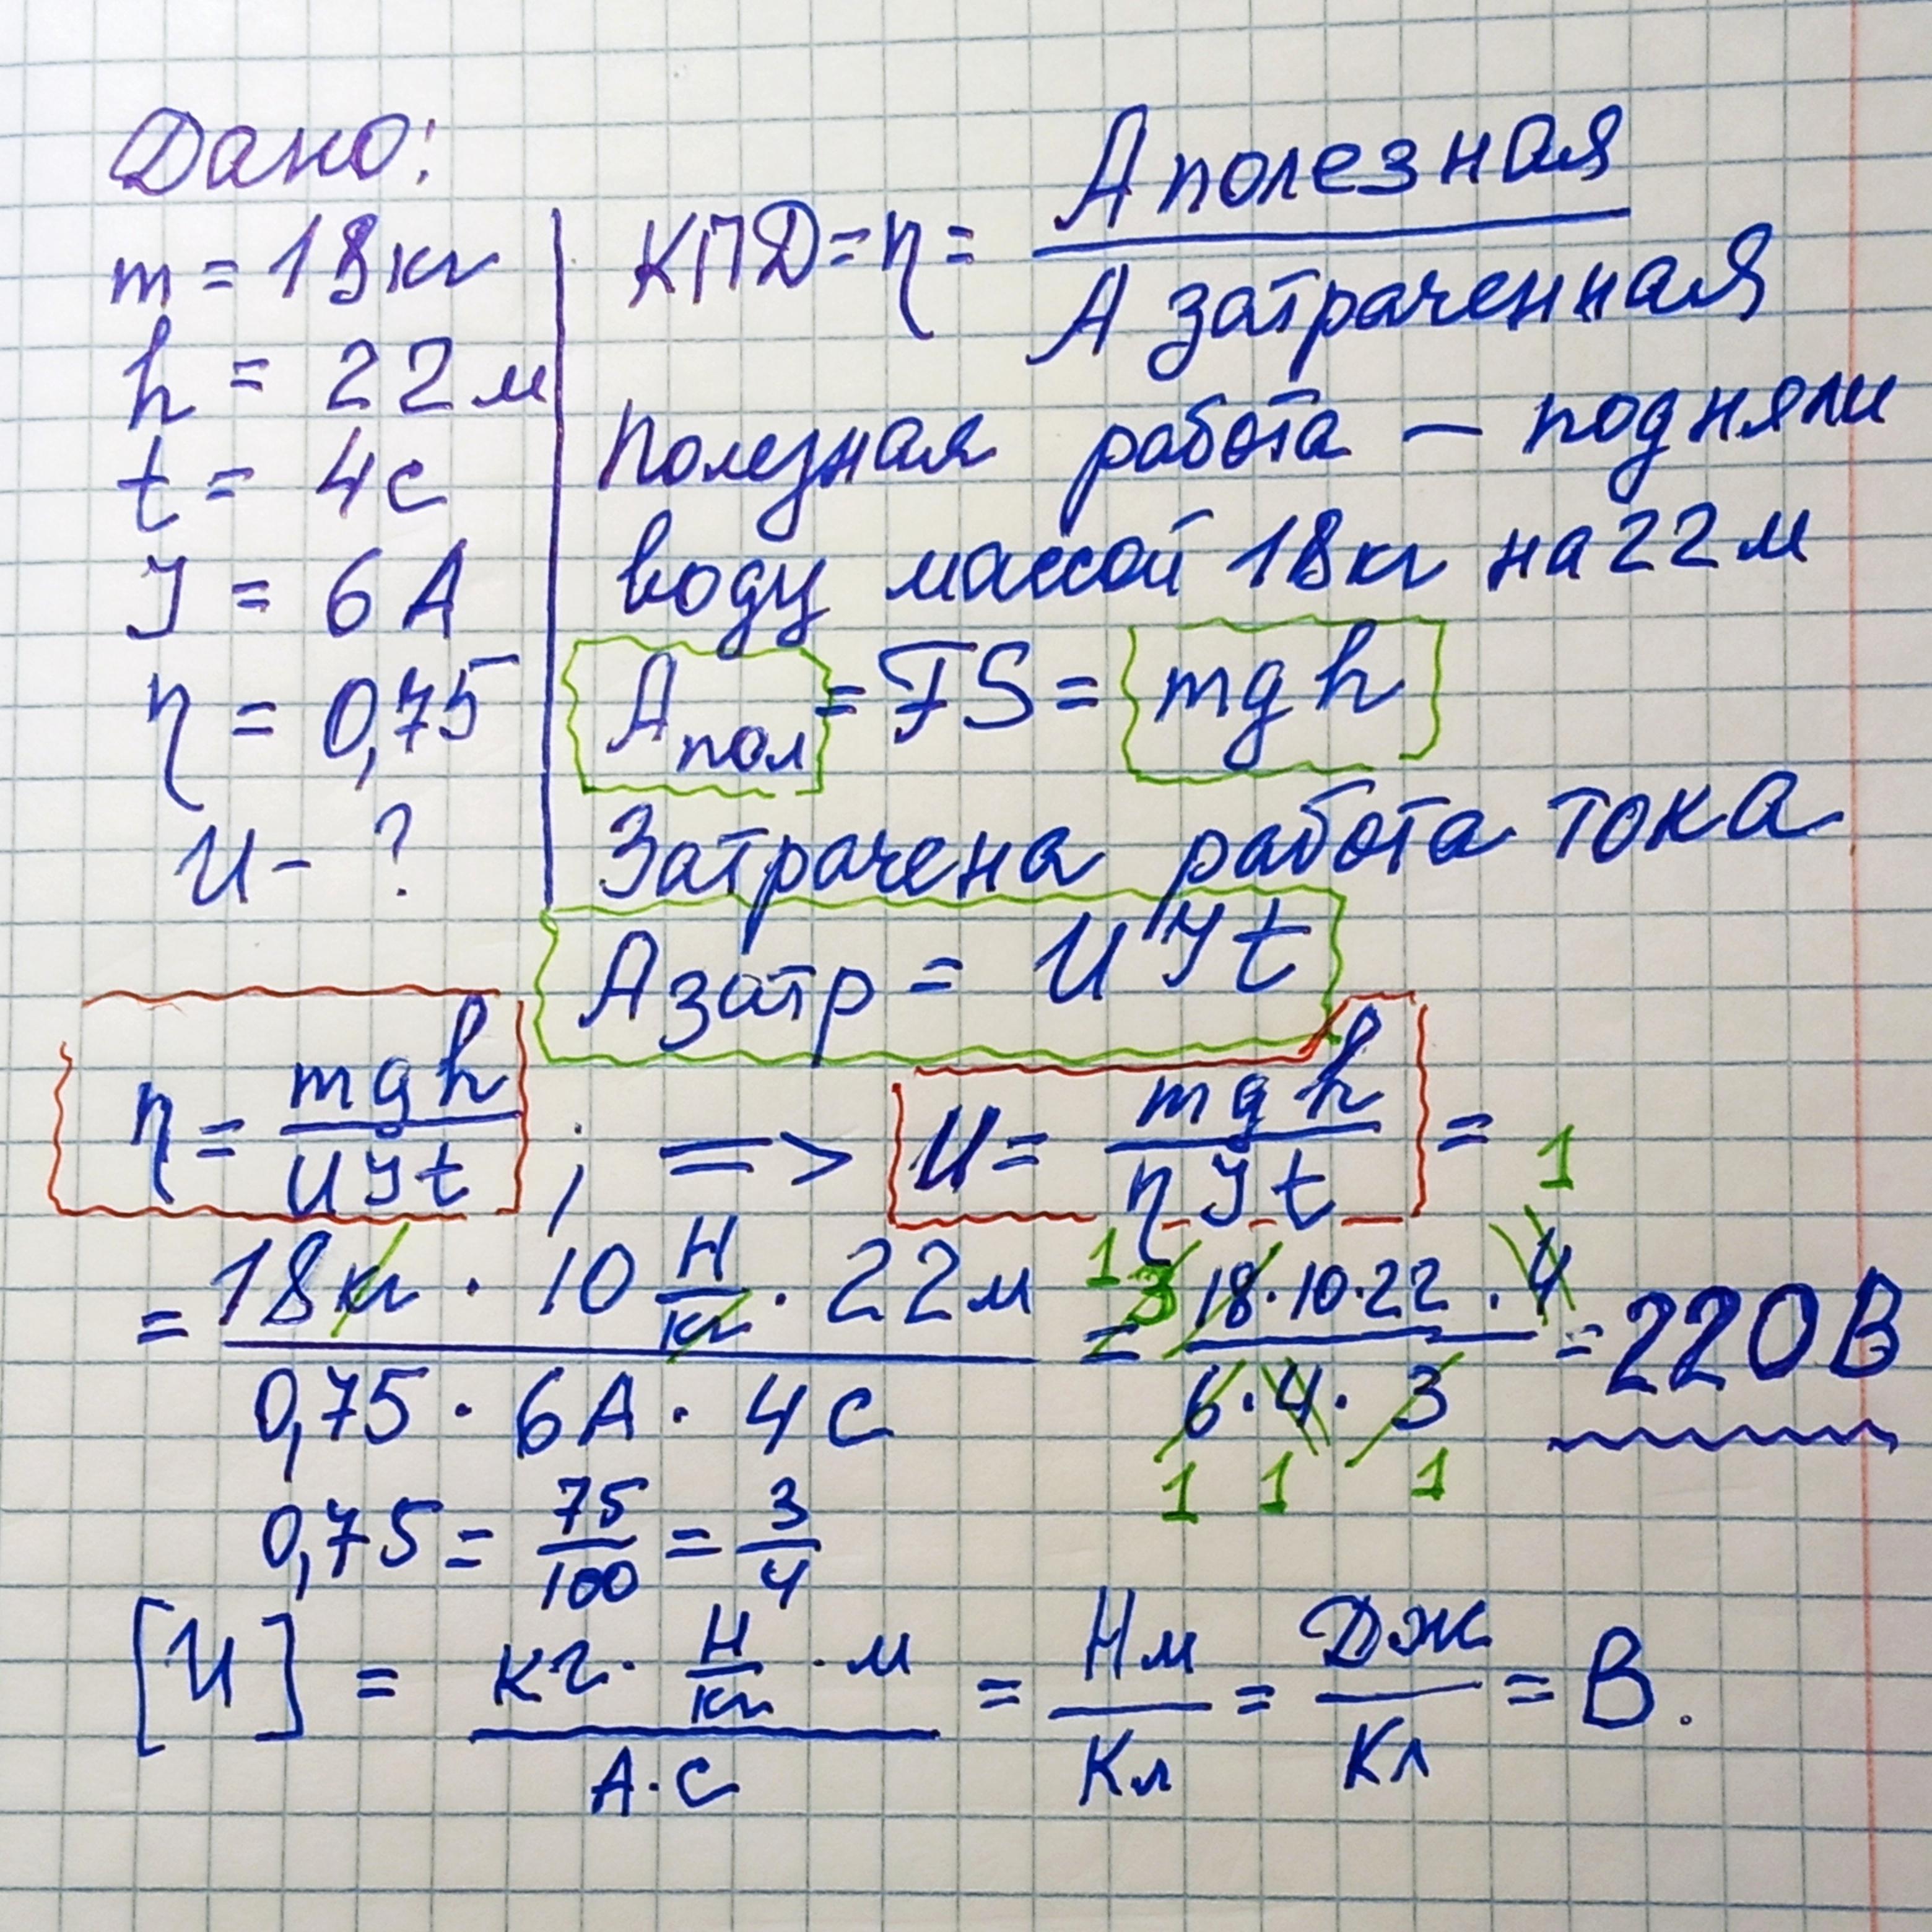 Дано:
m = 18 кг
h = 22 м
t = 4 с
I = 6 А
η = 0,75
U - ?
КПД = η = А полезная / А затраченная
Полезная работа — подняли
воду массой 18 кг на 22 м
Апол = FS = mgh
Затрачена работа тока
Азатр = UIt
η = mgh / UIt ; => U = mgh / ηIt =
= 18 кг · 10 Н/кг · 22 м / 0,75 · 6 А · 4 с = 18 · 10 · 22 · 4 / 6 · 4 · 3 = 220 В
1 3 1
1 1 1
0,75 = 75/100 = 3/4
[U] = кг · Н/кг · м / А · с = Нм / Кл = Дж / Кл = В.